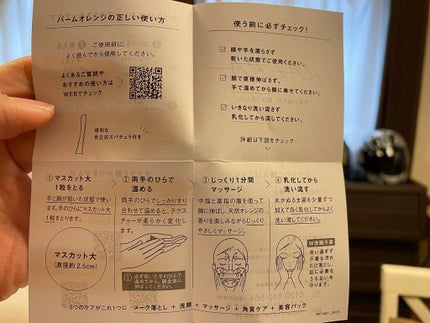 バームオレンジの正しい使い方
ご使用前に
よく読んでから使用してください。
よくあるご質問や
おすすめの使い方は
WEBでチェック
便利な
自立式スパチュラ付き
使う前に必ずチェック!
顔や手を濡らさず
乾いた状態でご使用ください。
顔で直接伸ばさず、
手で温めてから顔に乗せてください。
いきなり洗い流さず
乳化してから流してください。
詳細は下図をチェック
①マスカット大
1粒をとる
手と顔が乾いた状態で使い
ます。手のひらにマスカット大
1粒をとります。
マスカット大
(直径約2.5cm)
②両手のひらで
温める
両手のひらでしっかりすり
合わせて温めると、テクス
チャーが柔らかく変化しま
す。
必ず乾いた手のひらで
温めてから、顔全体
に伸ばしてください。
③じっくり1分間
マッサージ
中指と薬指の腹を使って
顔に伸ばし、天然オレンジの
香りを楽しみながらじっくり
やさしくマッサージ。
④乳化してから
洗い流す
水かぬるま湯を少量ずつ
加えて白く乳化してからよく
洗い流してください。
W洗顔不要
5つのケアがこれ1つに メーク落とし + 洗顔 + マッサージ + 角質ケア + 美容パック